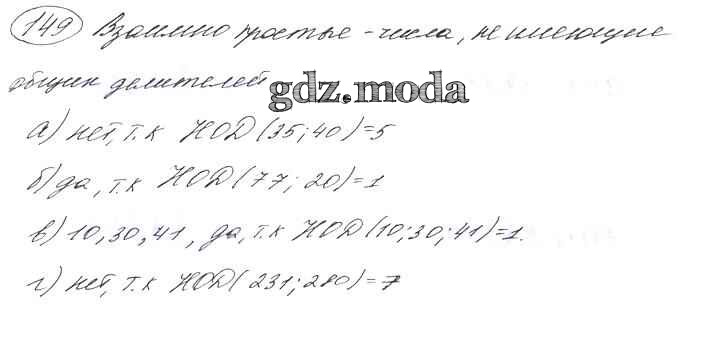 149 Взаимно простые - числа, не имеющие
общих делителей
gdz.moda
а) нет, т.к НОД(35;40)=5
б) да, т.к НОД(77; 20)=1
в) 10,30,41, да, т.к НОД(10;30;41)=1.
г) нет, т.к НОД(231;280)=7